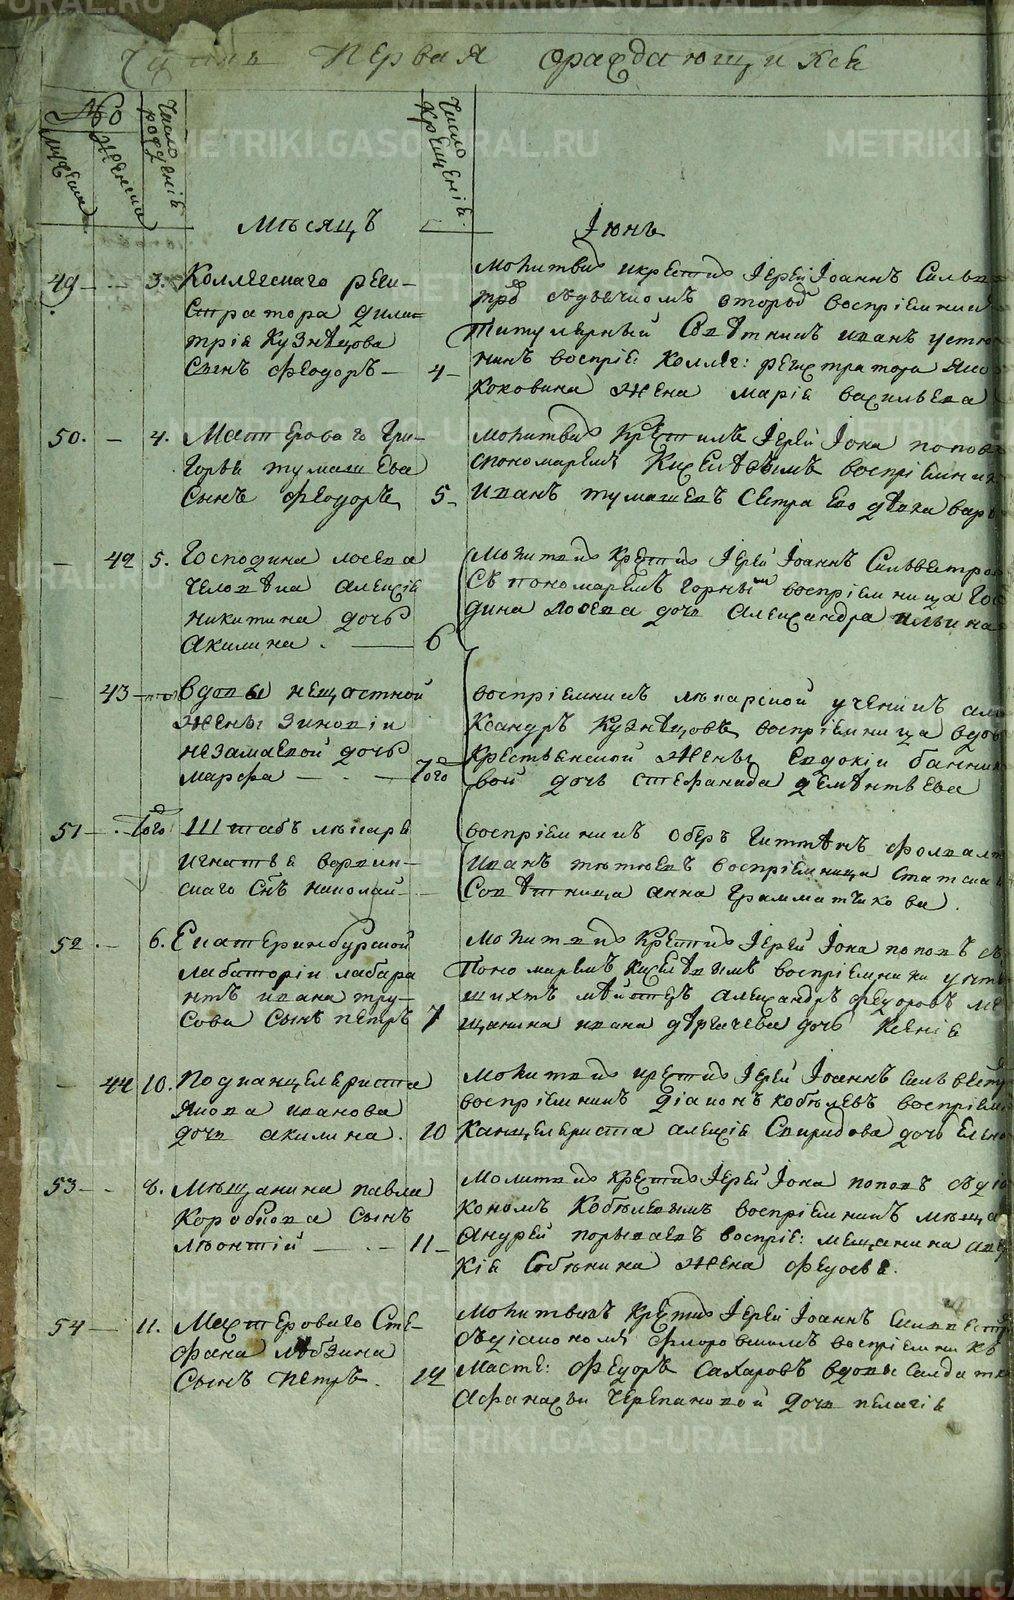 Часть Первая о раждающихся
№
Мужеска
Женска
Число рожденія
Число Крещенія
Мѣсяцъ
Іюнь
49 3. Коллежскаго реги-
стратора Дими-
трія Кузнѣцова
Сынъ Феодоръ 4
Молитвилъ и крестилъ Іерей Іоаннъ Сильве
съдьячкомъ вторый воспріемники
Титулярный Совѣтникъ иванъ устю
нинъ воспріе: коллег: регистратора Яко
Коковина жена Марія васильева
50. 4. Мастероваго Гри-
горья тумашева
Сынъ Феодоръ 5
Молитвилъ Крестилъ Іерей Іона поповъ
спономаремъ Киселѣвымъ воспріемник
Иванъ тумашевъ Сестра Его дѣвка вар
42 5. Господина лосева
человѣка алексѣя
никитина дочь
Акилина. 6
Молитвилъ Крестилъ Іерей Іоаннъ Сильвестров
Съ пономаремъ горны воспріемница Гос
дина Лосева дочь Александра ильина
43 вдовы нещастной
жены Зиновіи
незамаевой дочь
марфа Того
воспріемникъ лѣкарской ученикъ але
Ксандръ Кузнѣцовъ, воспріемница вдов
крестьянской жены Евдокіи банник
вой дочь стефанида дементьева
51 Того Штабъ лѣкаря
игнатья ворвин-
скаго Снъ николай
воспріемникъ оберъ гиттенъ фолвалт
Иванъ тѣтюевъ воспріемница Статска
Совѣтница анна Грамматчикова.
52. 6. Екатеринбурской
лабаторіи лабара
нтъ ивана тру-
сова Сынъ петръ 7
Молитвилъ Крестилъ Іерей Іона поповъ съ
Пономаремъ Киселѣвымъ воспріемники унт
шихтъ мѣйстеръ александръ федоровъ ме
щанина ивана дѣрягева дочь Ксенія
44 10. Подканцеляриста
Якова иванова
дочь акилина. 10
Молитвилъ крестилъ Іерей Іоаннъ Сильвестр
воспріемникъ діаконъ кобылевъ воспріемн
Канцеляриста алексѣя Свиридова дочь Елен
53 8. Мѣщанина павла
Коробкова Сынъ
лѣонтій 11
Молитвилъ Крестилъ Іерей Іона поповъ съді
кономъ Кобылевымъ воспріемникъ мѣща
Андрей порываевъ воспріе: мещанина аве
кія Собянина жена федосья.
54 11. Мастероваго Сте-
фана лобзина
Сынъ петръ. 12
Молитвовалъ Крестилъ Іерей Іоаннъ Сильвестр
съдіакономъ флоровскимъ воспріемникъ
Масте: Федоръ Сахаровъ вдовы Салдатк
Афанасьи Черепановой дочь пелагія
METRIKI.GASO-URAL.RU